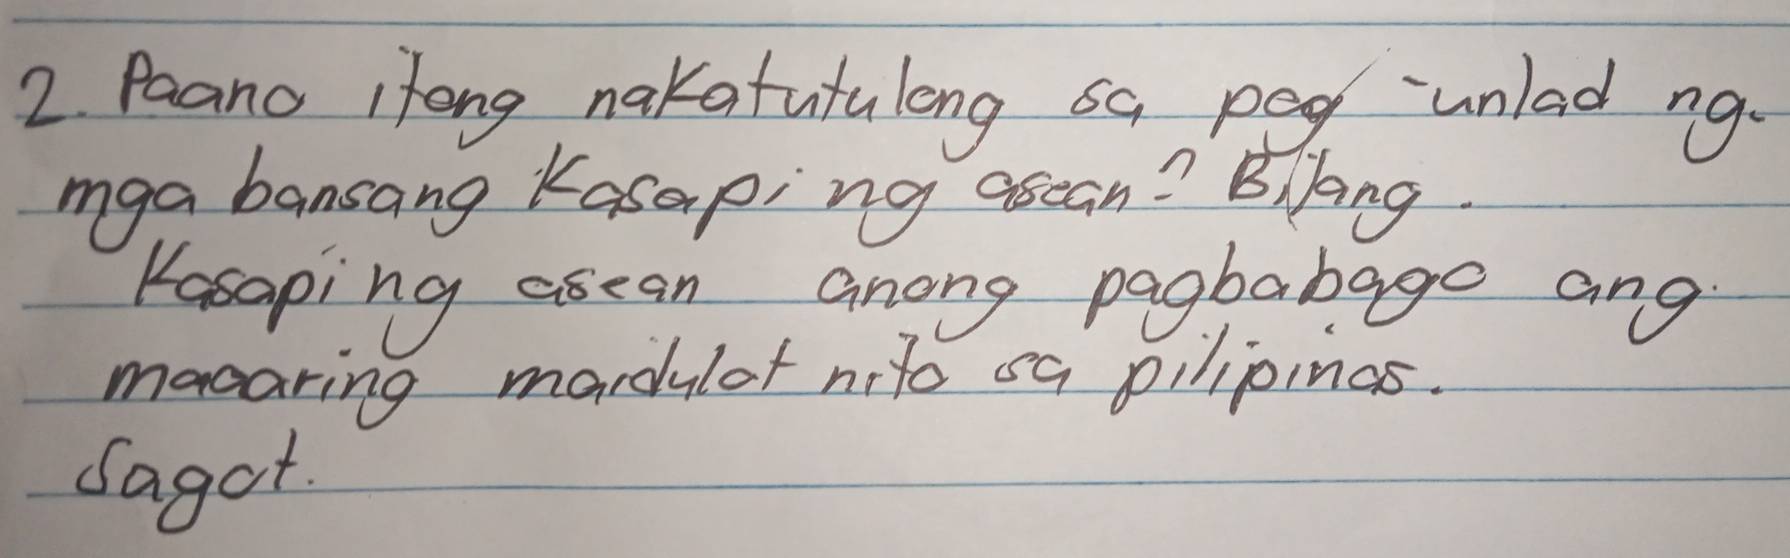 2. Paano itong nakatutulong sa pag-unlad ng
mga bansang Kasaping asean? Bilang.
Kasaping asean anong pagbabago ang
maaaring maidulot nito sa pilipinas.
Sagot.